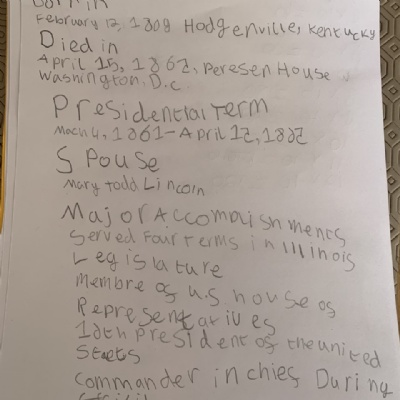 Born in
February 12, 1809 Hodgenville, Kentucky
Died in
April 15, 1862, peresen House
Washington, D.c
Presidential Term
Mach 4, 1861-April 12, 1882
Spouse
Mary Todd Lincoin
Major Accomplishments
Served Four Terms in Illinois
Legislature
Membre of u.s house of
Representatives
16th president of the united
States
Commander in chies During